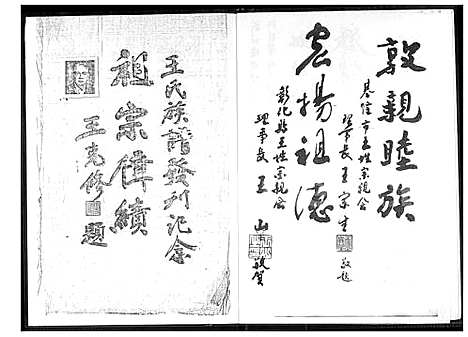 敦親睦族
基隆市王姓宗親會
理事長王宗生 敬題
宏揚祖德
彰化縣王姓宗親會
理事長王山 敬賀
王氏族譜發刊紀念
祖宗偉績
王克修題